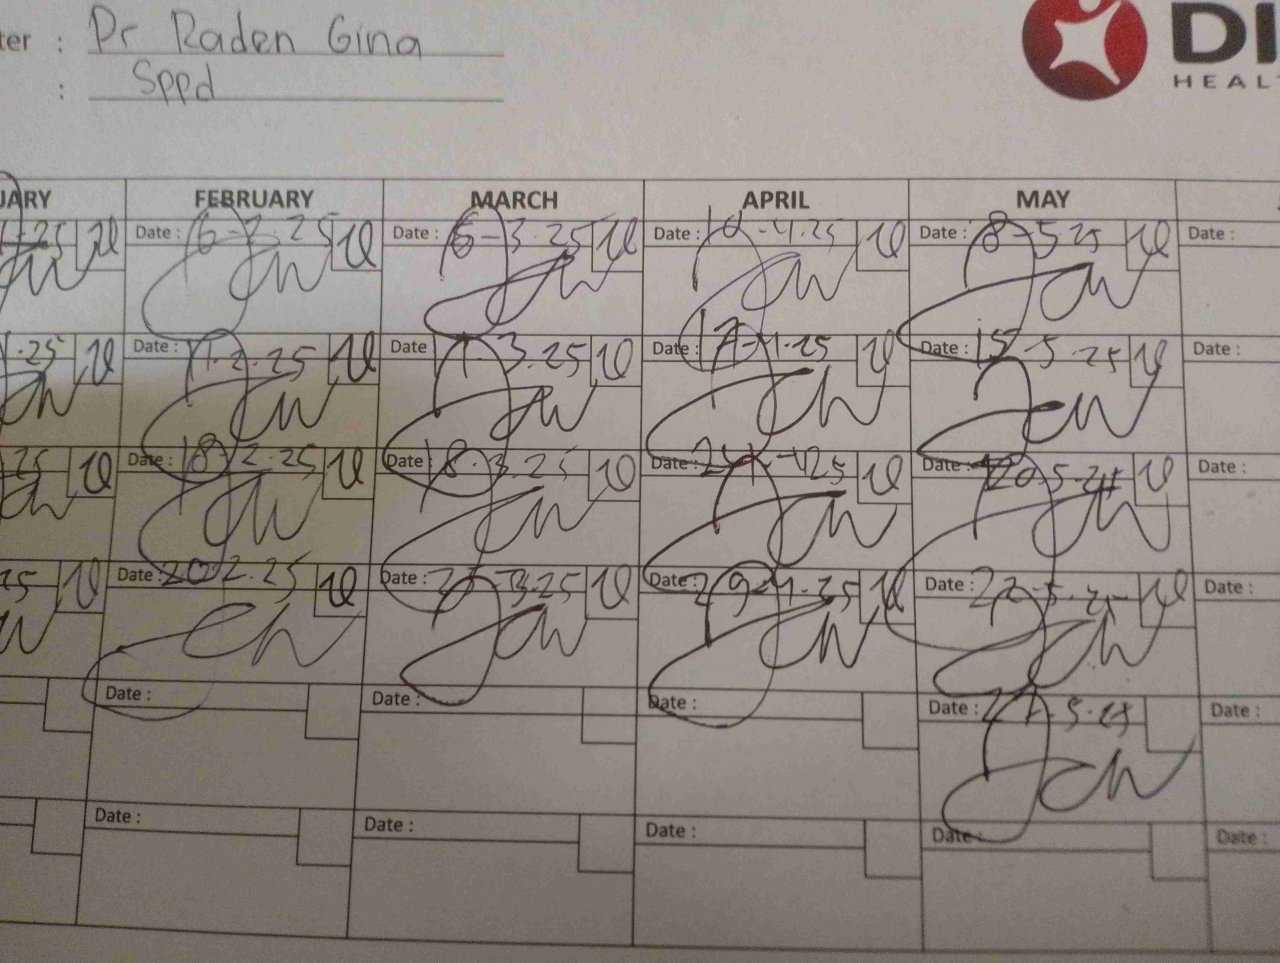 ter : Dr Raden Gina
: Sppd
DI
HEAL
UARY FEBRUARY MARCH APRIL MAY
Date : 6-2-25 Date : 6-3-25 Date : 10-4-25 Date : 8-5-25 Date :
.25 Date : 11-2-25 Date 11-3.25 Date : 17-4-25 Date : 15-5-25 Date :
25 Date : 18-2-25 Date : 18.3.25 Date : Date : 20.5.25 Date :
25 Date : 20-2.25 Date : 25-3-25 Date : 29-4-25 Date : 22-5-25 Date :
Date : Date : Date : Date : 27-5-25 Date :
Date : Date : Date : Date : Date :